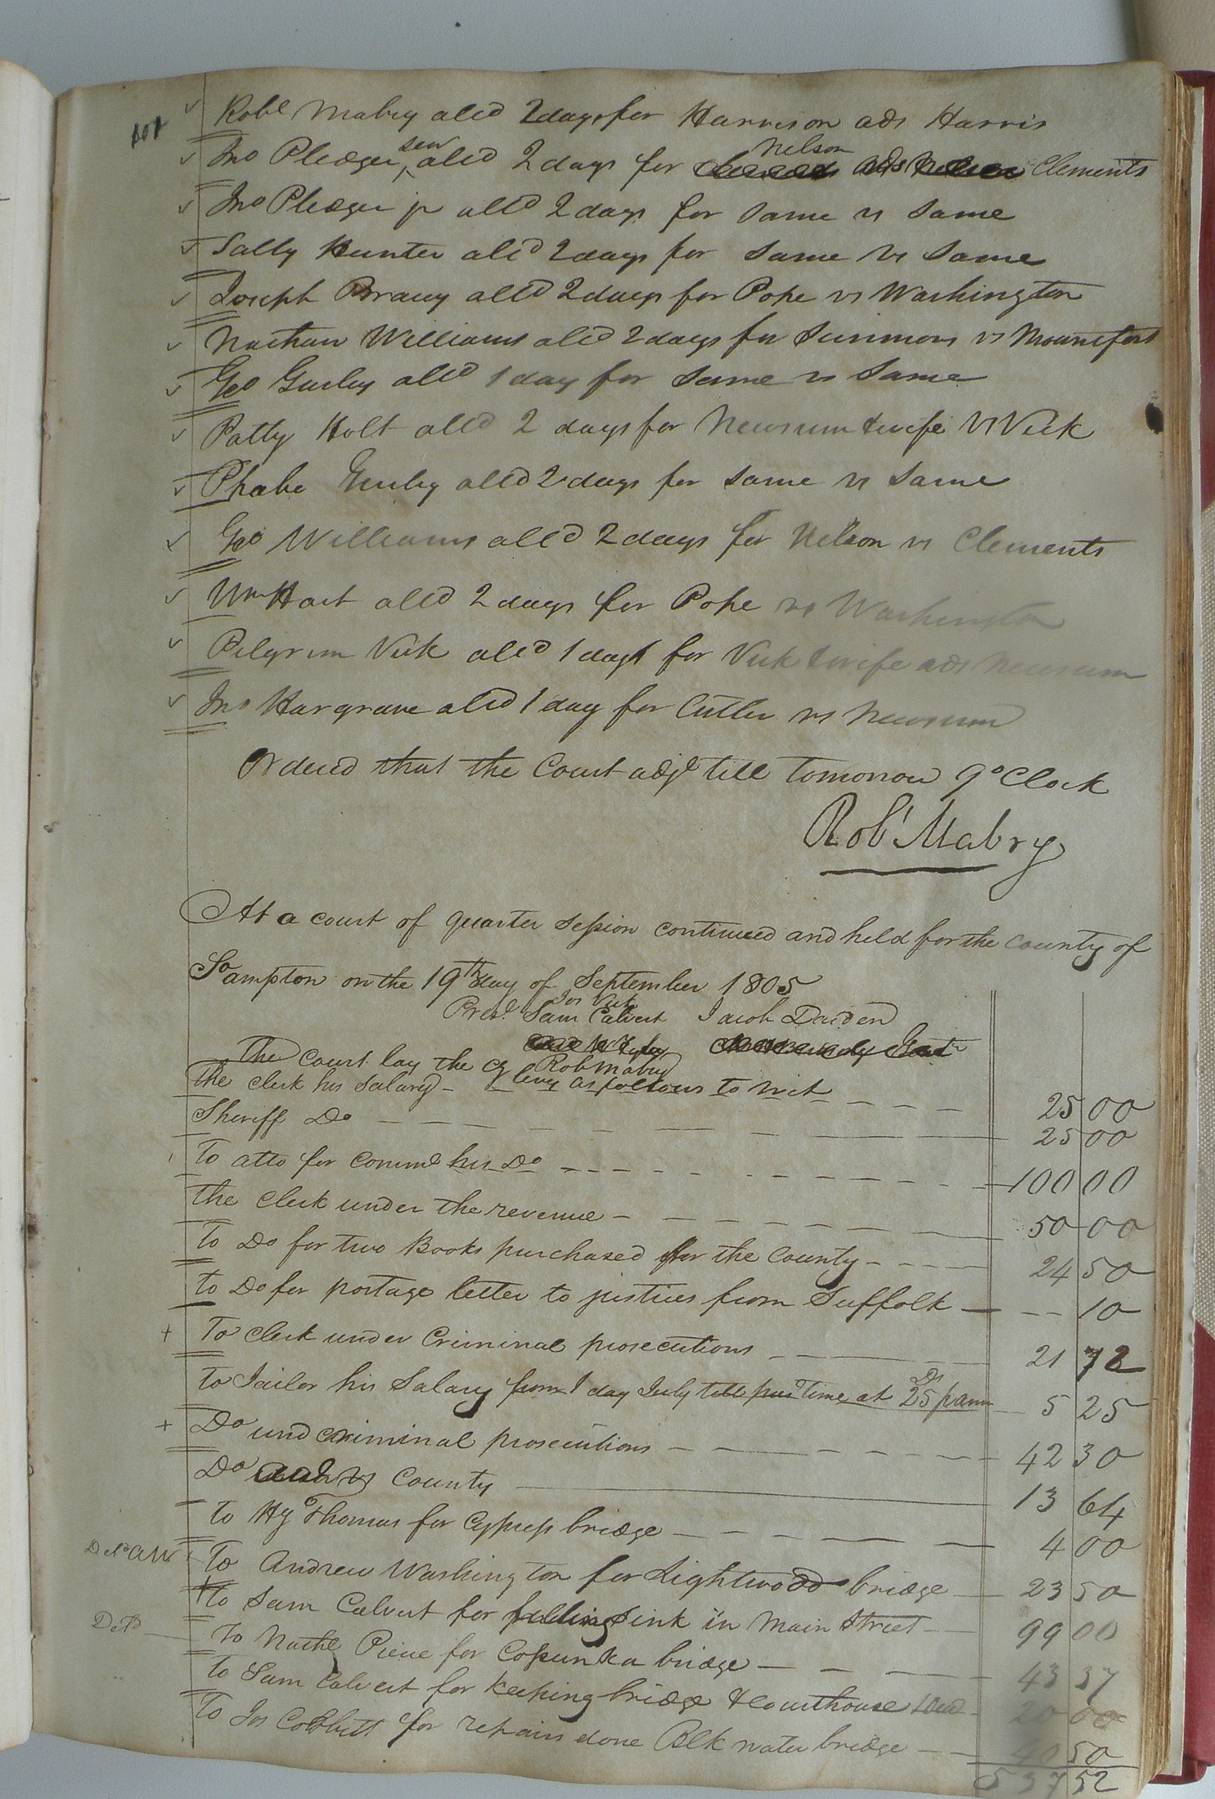 Robt Mabry alld 2 days for Harrison ads Harris
Jno Pledger senr alld 2 days for Nelson ads Clements
Jno Pledger jr alld 2 days for same vs same
Sally Hunter alld 2 days for same vs same
Joseph alld 2 days for Pope vs Washington
Nathan Williams alld 2 days for Simmons vs Mountfort
Geo Gurley alld 1 day for same vs same
Patty Holt alld 2 days for Newsum & wife vs Vick
Phebe Gurley alld 2 days for same vs same
Geo Williams alld 2 days for Nelson vs Clements
Wm Hart alld 2 days for Pope vs Washington
Pilgrim Vick alld 1 day for Vick & wife ads Newsum
Jno Hargrave alld 1 day for Cutler vs Newsum
Ordered that the Court adjd till tomorrow 9 oClock
Robt Mabry
At a court of quarter Session continued and held for the County of
Soampton on the 19th day of September 1805
Jos Vick
Prest Sam Calvert Jacob Darden
Rob Mabry
The Court lay the Cy levy as follows to wit
the clerk his Salary 25 00
Sheriff Do 25 00
To atto for Commth his Do 100 00
the clerk under the revenue 50 00
To Do for two Books purchased for the County 24 50
to Do for postage letter to justices from Suffolk 10
+ To clerk under Criminal prosecutions 21 72
to Jailor his Salary from 1 day July till time at 25 Ds p ann 5 25
+ Do und criminal prosecutions 42 30
Do County 13 64
to Hy Thomas for Cypress bridge 4 00
To Andrew Washington for Lightwood bridge 23 50
to Sam Calvert for filling sink in Main Street 99 00
To Nathl for Cosunka bridge 43 37
To Sam Calvert for keeping bridge & Courthouse 20 00
To Jos for repairs done Blk water bridge 40 50
537 52